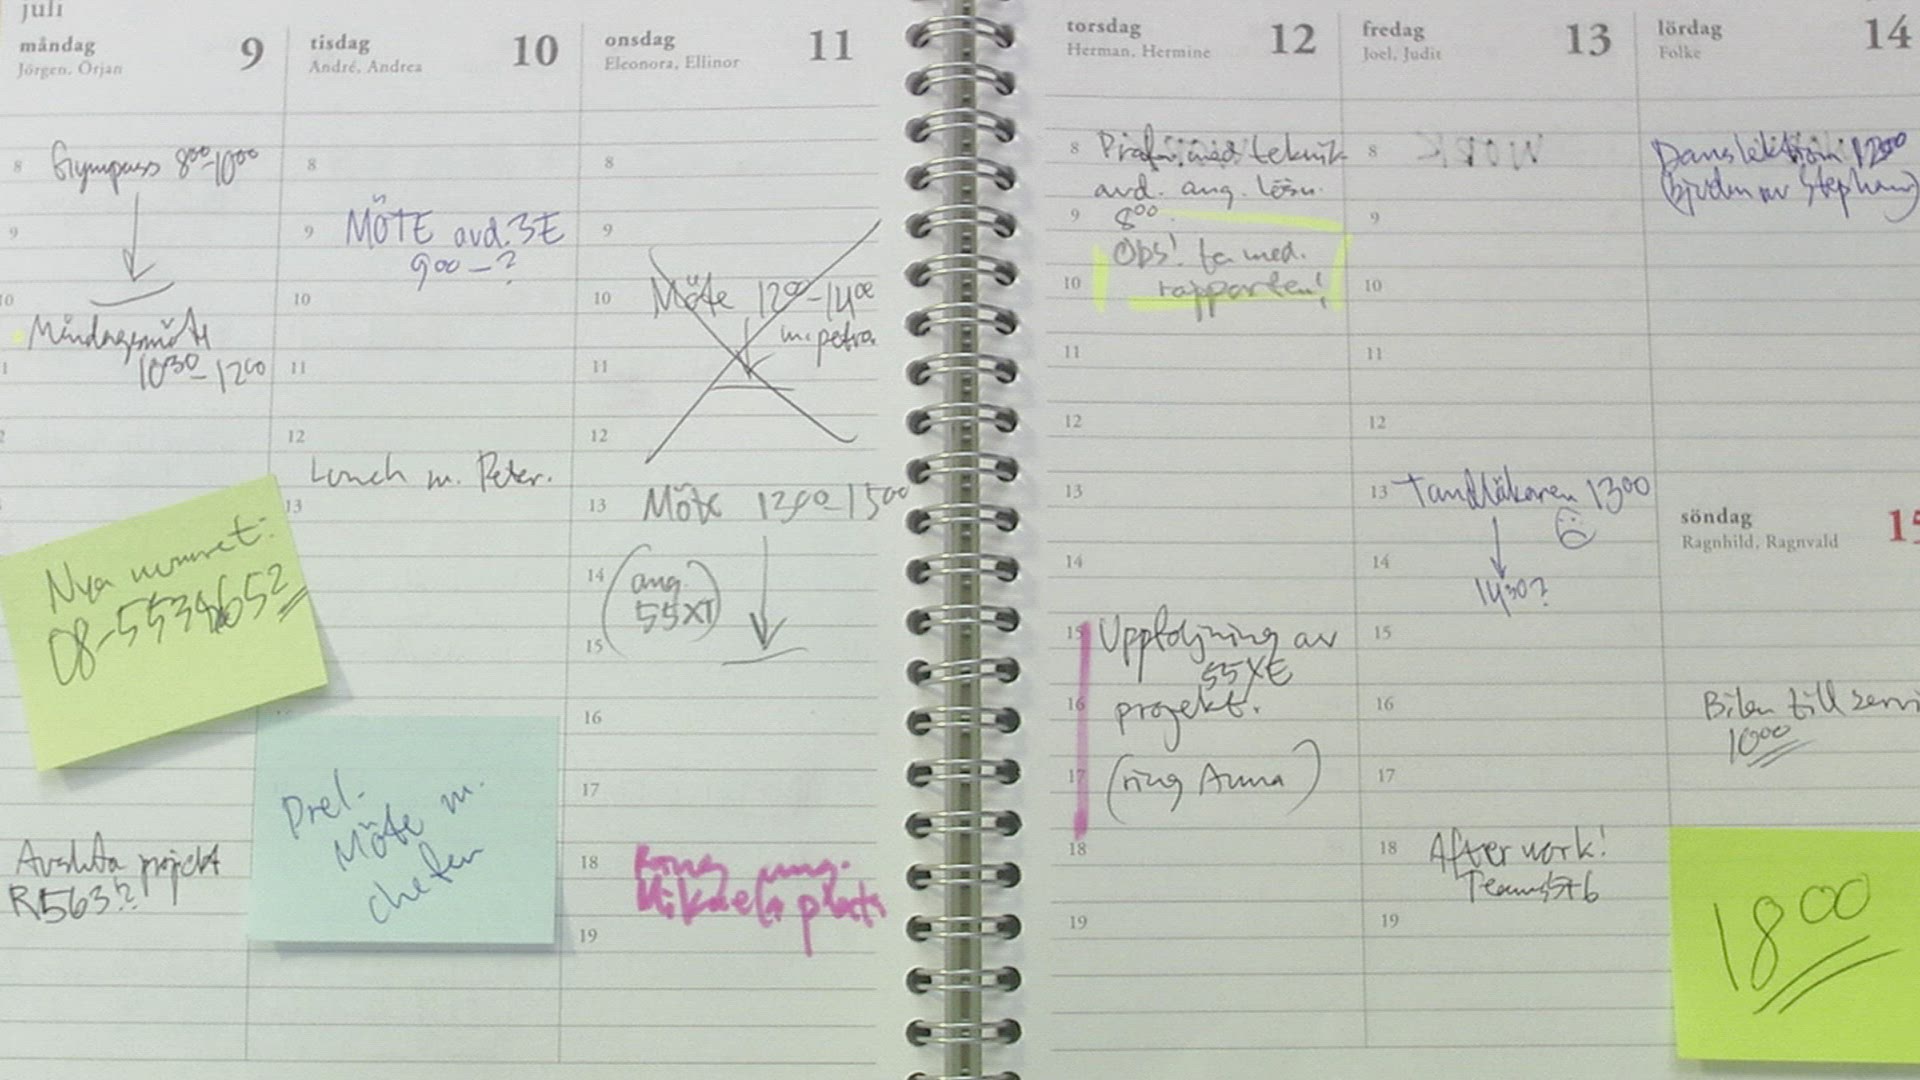 juli
måndag 9
Jörgen, Örjan
8 Gympass 8⁰⁰-10⁰⁰
9
10
Måndagsmöte
10³⁰-12⁰⁰
Nya numret:
Avsluta projekt
R563??
tisdag 10
André, Andrea
8
9 MÖTE avd. 3E
9⁰⁰-?
10
11
12
Lunch m. Peter.
13
Prel.
Möte m.
chefen
onsdag 11
Eleonora, Ellinor
8
9
10 Möte 12⁰⁰-14⁰⁰
m. petra
11
12
13 Möte 13⁰⁰-15⁰⁰
14 (ang.
55XT)
15
16
17
18 Ring ang.
Mikaels plats
19
torsdag 12
Herman, Hermine
8 med teknik
avd. ang. lösn.
9 8⁰⁰
Obs! ta med.
10 rapporten!
11
12
13
14
15 Uppföljning av
55XE
16 projekt.
17 (ring Anna)
18
19
fredag 13
Joel, Judit
8
9
10
11
12
13 Tandläkaren 13⁰⁰
14
14³⁰?
15
16
17
18 After work!
19
lördag 14
Folke
Danslektion 12⁰⁰
(bjuden av Stephan)
söndag 15
Ragnhild, Ragnvald
Bilen till servi
10⁰⁰
18⁰⁰